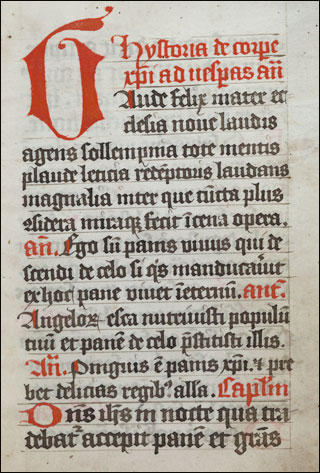 Hystoria de corpe
xpi ad uespas añ
Gaude felix mater ec
clesia noue laudis
agens sollempnia tote mentis
plaude leticia redēptoris laudans
magnalia inter que cūcta plus
9sidera miraq; fecit i cena opera.
añ. Ego sū panis viuus qui de
scendi de celo si q's manducau'it
ex hoc pane viuet i eternū. ant.
Angeloꝝ esca nutriuisti populū
tuū et panē de celo p̄stitisti illis.
Añ. Pinguis ē panis xpi. ⁊ pre
bet delicias regib; alla. Capl'm
Dn̄s ih̄s in nocte qua tra
debat᷑ accepit panē et grās